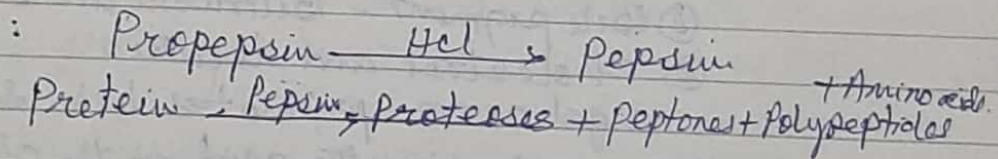 : Propepsin —HCl→ Pepsin
Protein —Pepsin→ Proteoses + Peptones + Polypeptides + Amino acids.